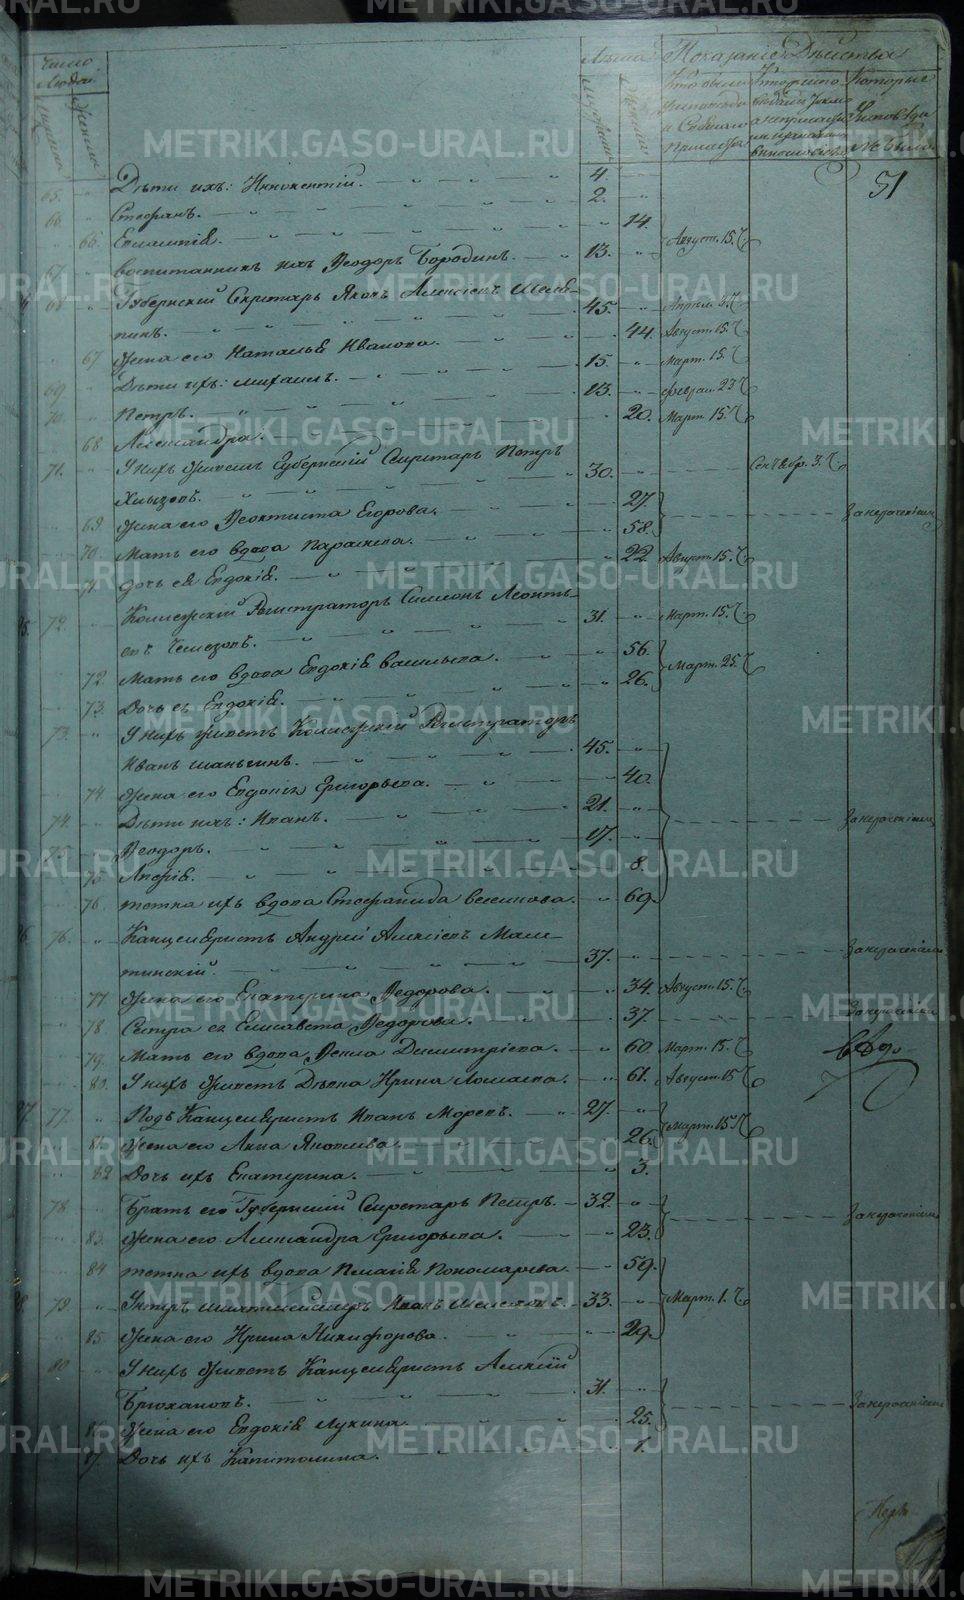 METRIKI.GASO-URAL.RU
Число людей
Мужска
Женска
Лѣта
Мужеска
Женска
Показаніе Дѣйства
Кто были у исповѣди и Св. Причастія
Которые у исповѣди не были
51
65. Дѣти ихъ: Иннокентій. 4.
66. Стефанъ. 2.
66. Евлампія. 14.
67. воспитанникъ ихъ Ѳеодоръ Бородинъ. 13. Август. 15. Ч
68. Губернскій Секретарь Яковъ Алексѣевъ
45. Апрѣл. 3. Ч
67. Жена его Наталья Иванова. 44. Август. 15. Ч
69. Дѣти ихъ: Михаилъ. 15. Март. 15. Ч
70. Петръ. 13. Феврал. 23 Ч
68. Александра. 20. Март. 15. Ч
71. У нихъ живетъ Губернскій Секретарь Петръ
Хлызовъ. 30. Сентябр. 3. Ч
69. Жена его Ѳеоктиста Егорова. 27.
70. Мать его вдова Парасковья. 58. За нерачениемъ
71. Дочь ея Евдокія. 22. Август. 15. Ч
25. 72. Коллежскій Регистраторъ Симеонъ Леонть-
евъ Чемезовъ. 31. Март. 15. Ч
72. Мать его вдова Евдокія Васильева. 56.
73. Дочь её Евдокія. 26. Март. 25. Ч
73. У нихъ живетъ Коллежскій Регистраторъ
Иванъ Шаньгинъ. 45.
74. Жена его Евдокія Григорьева. 40.
74. Дѣти ихъ: Иванъ. 21. За нерачениемъ
75. Ѳеодоръ. 17.
75. 8.
76. тетка ихъ вдова Стефанида 69.
26. 76. Канцеляристъ Андрей Алексѣевъ Маля-
тинскій. 37. За нерачениемъ
77. Жена его Екатерина Ѳедорова. 34. Август. 15. Ч
78. Сестра её Елисавета Ѳедорова. 37. За нерачениемъ
79. Мать его вдова Ѳекла Димитріева. 60. Март. 15. Ч
80. У нихъ живетъ Дѣвка Ирина 61. Август. 15 Ч
27. 77. Подъ Канцеляристъ Иванъ Моревъ. 27.
81. Жена его Анна Яковлева. 26. Март. 15 Ч
82. Дочь ихъ Екатерина. 3.
78. Братъ его Губернскій Секретарь Петръ. 32. За нерачениемъ
83. Жена его Александра Григорьева. 23.
84. тетка ихъ вдова Пелагія Пономарева. 59.
28. 79. Унтеръ Шихтмейстеръ Иванъ 33. Март. 1. Ч
85. Жена его Ирина Никифорова. 29.
80. У нихъ живетъ Канцеляристъ Алексій
Брюхановъ. 31. За нерачениемъ
86. Жена его Евдокія Лукина. 25.
87. Дочь ихъ Капитолина. 1.